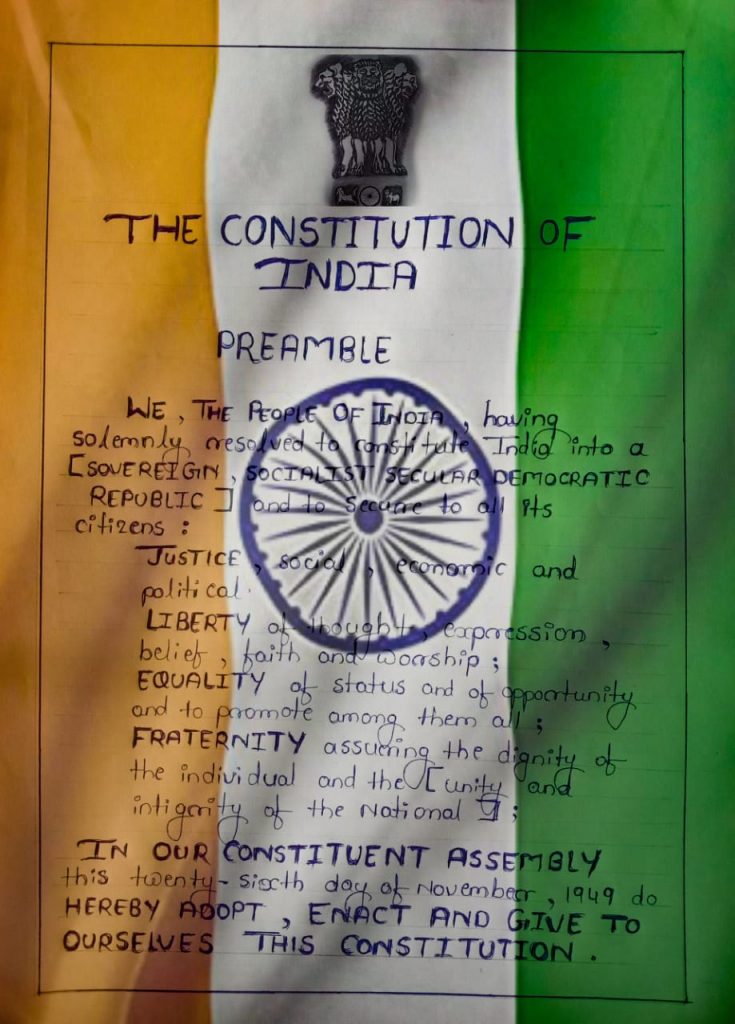 THE CONSTITUTION OF
INDIA
PREAMBLE
WE, THE PEOPLE OF INDIA, having
solemnly resolved to constitute India into a
[SOVEREIGN, SOCIALIST SECULAR DEMOCRATIC
REPUBLIC] and to secure to all its
citizens :
JUSTICE, social, economic and
political.
LIBERTY of thought, expression,
belief, faith and worship;
EQUALITY of status and of opportunity
and to promote among them all;
FRATERNITY assuring the dignity of
the individual and the [unity and
intigrity of the National];
IN OUR CONSTITUENT ASSEMBLY
this twenty-sixth day of November, 1949 do
HEREBY ADOPT, ENACT AND GIVE TO
OURSELVES THIS CONSTITUTION.